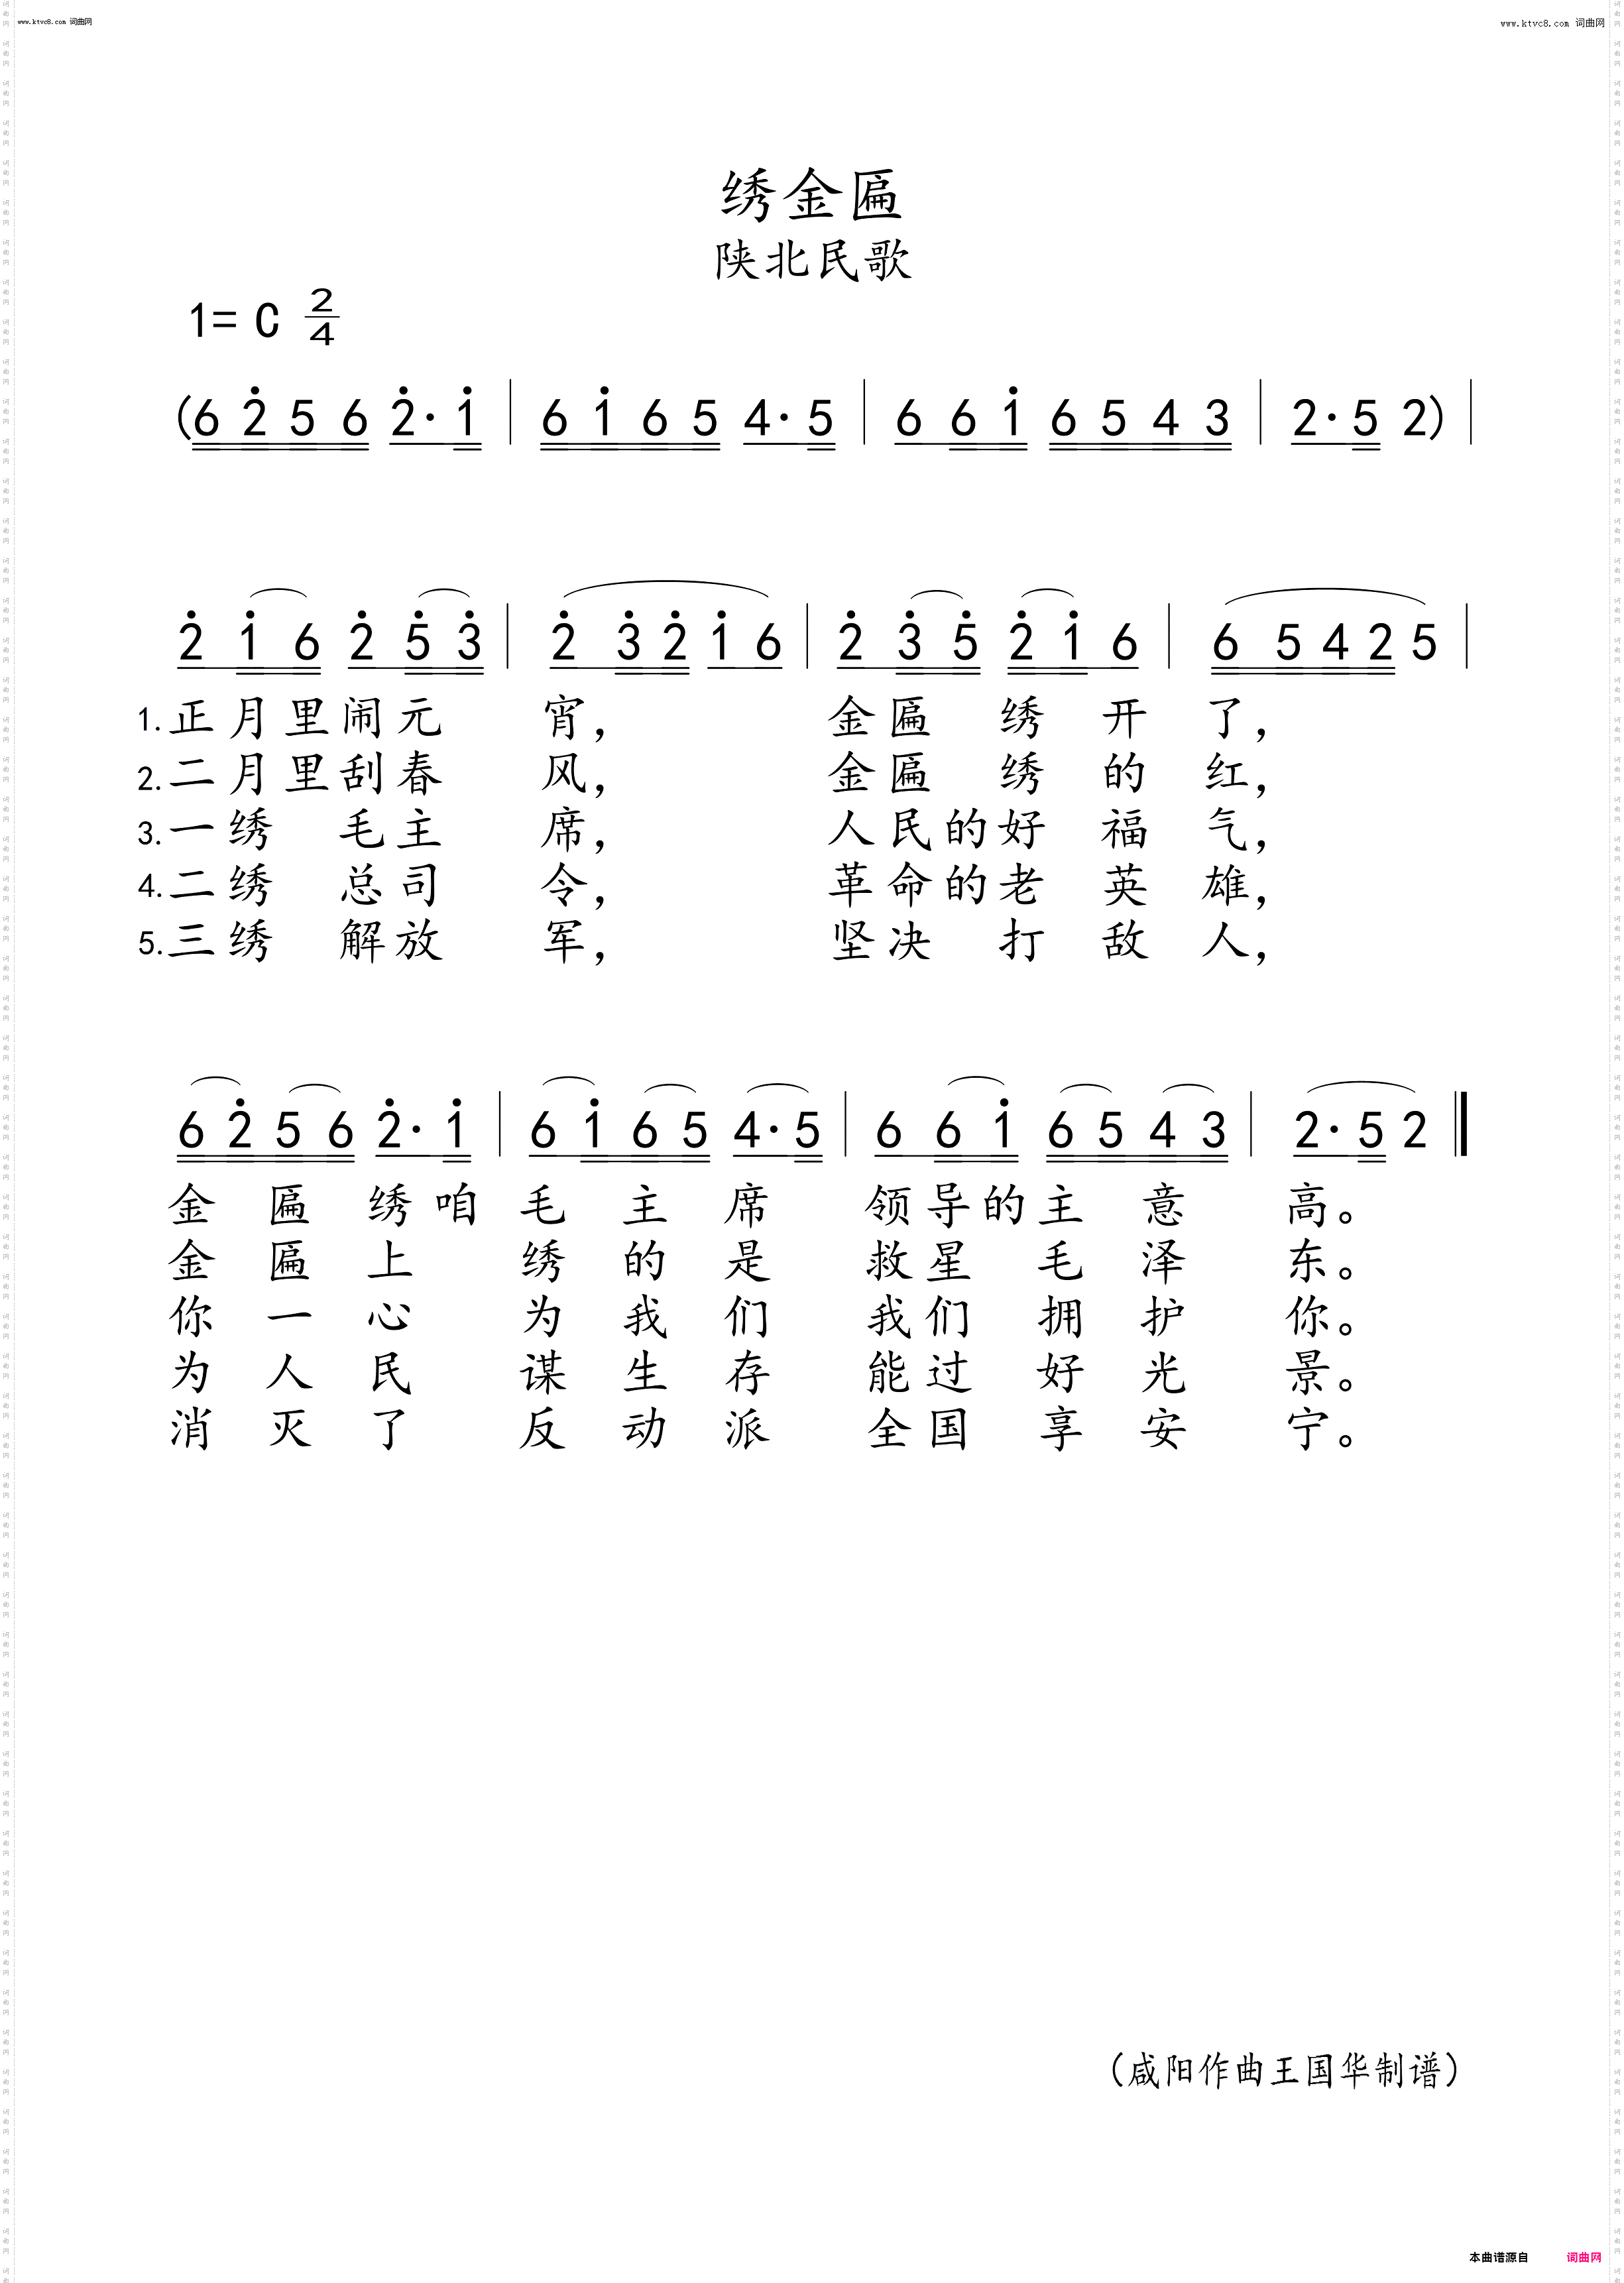 www.ktvc8.com 词曲网
www.ktvc8.com 词曲网
绣金匾
陕北民歌
1= C 2/4
(6 2̇ 5 6 2̇· 1̇ | 6 1̇ 6 5 4· 5 | 6 6 1̇ 6 5 4 3 | 2· 5 2) |
2̇ 1̇ 6 2̇ 5̇ 3̇ | 2̇ 3̇ 2̇ 1̇ 6 | 2̇ 3̇ 5̇ 2̇ 1̇ 6 | 6 5 4 2 5 |
1. 正月里闹元 宵, 金匾 绣 开 了,
2. 二月里刮春 风, 金匾 绣 的 红,
3. 一绣 毛主 席, 人民的好 福 气,
4. 二绣 总司 令, 革命的老 英 雄,
5. 三绣 解放 军, 坚决 打 敌 人,
6 2̇ 5 6 2̇· 1̇ | 6 1̇ 6 5 4· 5 | 6 6 1̇ 6 5 4 3 | 2· 5 2 ‖
金 匾 绣 咱 毛 主 席 领导的主 意 高。
金 匾 上 绣 的 是 救星 毛 泽 东。
你 一 心 为 我 们 我们 拥 护 你。
为 人 民 谋 生 存 能过 好 光 景。
消 灭 了 反 动 派 全国 享 安 宁。
(咸阳作曲王国华制谱)
本曲谱源自 词曲网